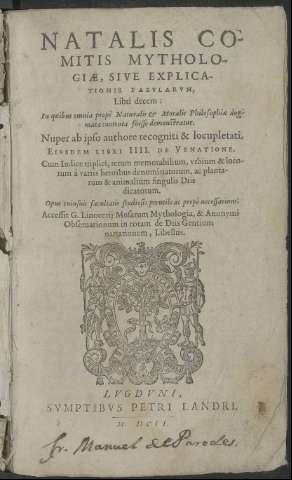 NATALIS CO-
MITIS MYTHOLO-
GIÆ, SIVE EXPLICA-
TIONIS FABVLARVM,
Libri decem:
In quibus omnia propè Naturalis & Moralis Philosophiæ dog-
mata contenta fuisse demonstratur.
Nuper ab ipso authore recogniti & locupletati.
EIVSDEM LIBRI IIII. DE VENATIONE.
Cum Indice triplici, rerum memorabilium, vrbium & loco-
rum à variis heroibus denominatorum, ac planta-
rum & animalium singulis Diis
dicatorum.
Opus cuiusuis facultatis studiosis perutile ac propè necessarium.
Accessit G. Linocerij Musarum Mythologia, & Anonymi
Obseruationum in totam de Diis Gentium
narrationem, Libellus.
LVGDVNI,
SVMPTIBVS PETRI LANDRI.
M. DCII.
fr. Manuel de Paredes.